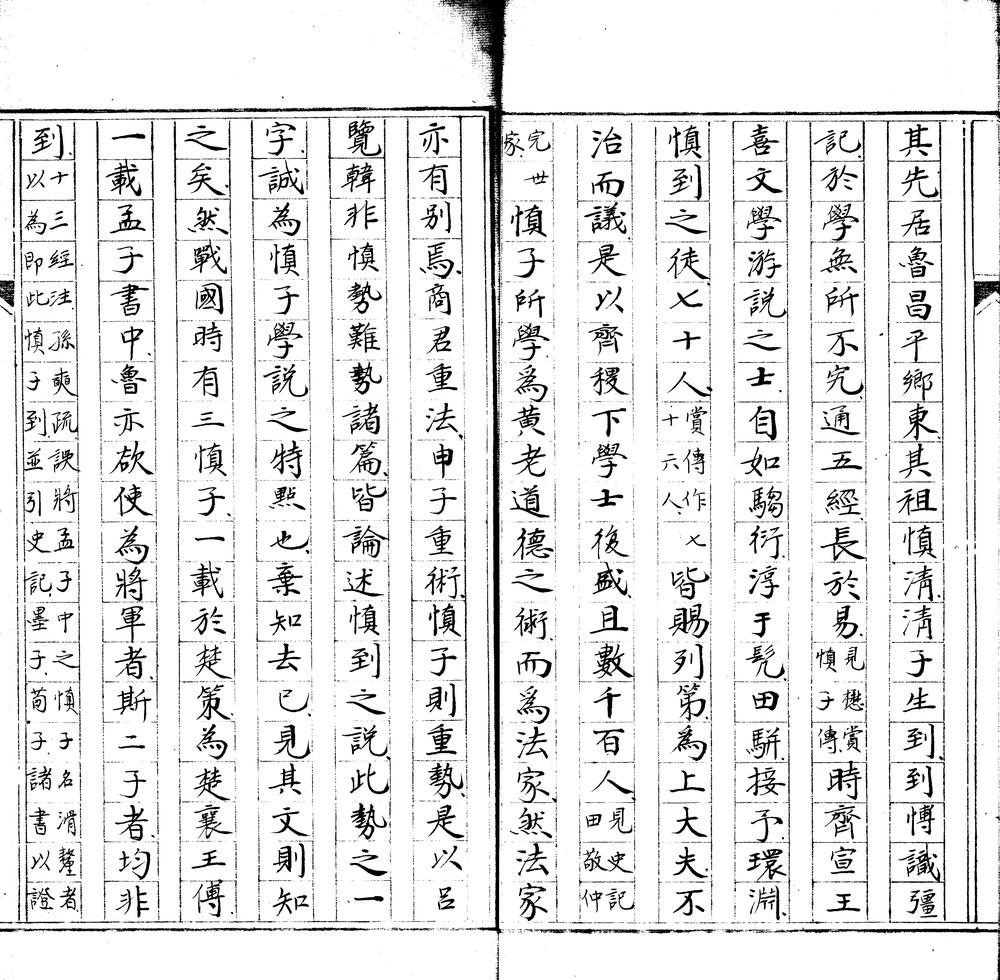 其先居魯昌平鄉東其祖慎淸淸子生到到博識彊
記於學無所不究通五經長於易見懋賞慎子傳時齊宣王
喜文學游說之士自如騶衍淳于髡田駢接予環淵
慎到之徒七十人賞傳作七十六人皆賜列第為上大夫不
治而議是以齊稷下學士復盛且數千百人見史記田敬仲
完世家慎子所學爲黄老道德之術而爲法家然法家
亦有别焉商君重法申子重術慎子則重勢是以呂
覽韓非慎勢難勢諸篇皆論述慎到之說此勢之一
字誠為慎子學說之特點也棄知去已見其文則知
之矣然戰國時有三慎子一載於楚策為楚襄王傅
一載孟子書中魯亦欲使為將軍者斯二子者均非
到十三經注孫奭疏誤將孟子中之慎子名滑釐者以為即此慎子到並引史記墨子荀子諸書以證